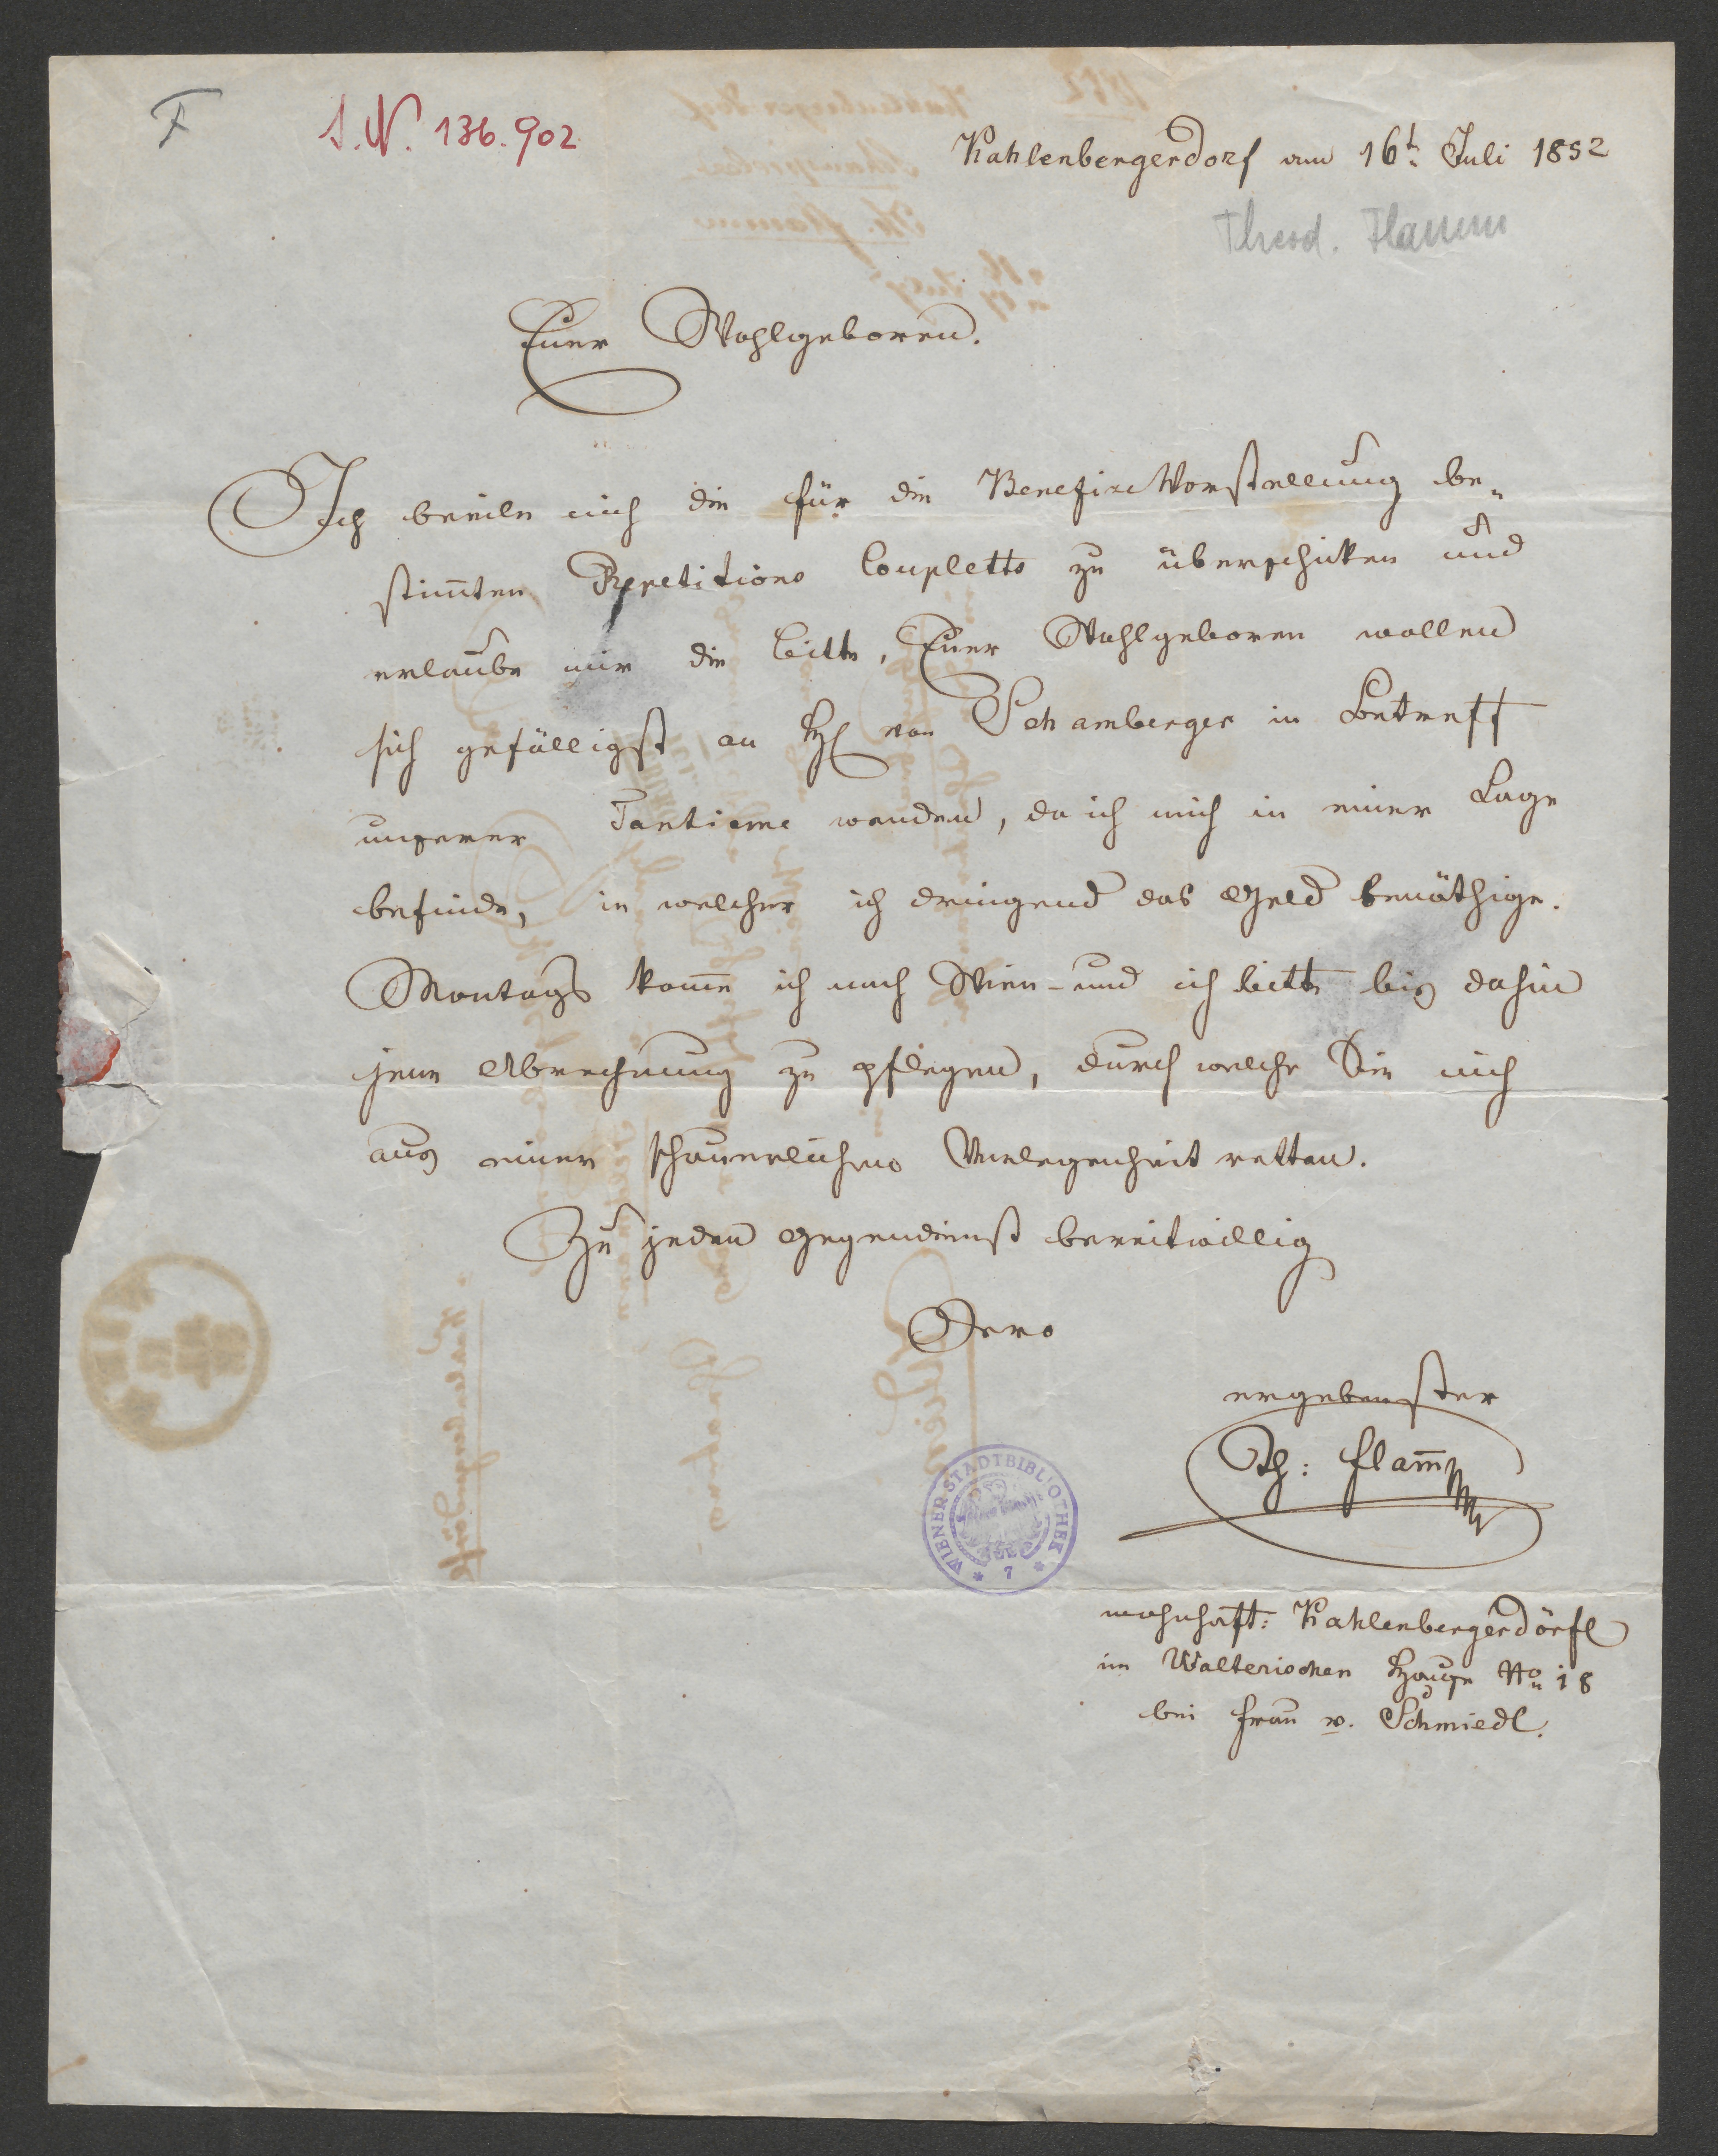 F
I.N. 136.902
Kahlenbergerdorf am 16t. Juli 1852
Theod. Flamm
Euer Wohlgeboren.
Ich beeile mich die für die Benefize Vorstellung be-
stim̅ten Repetitions Coupletts zu überschicken und
erlaube mir die bitte, Euer Wohlgeboren wollen
sich gefälligst an H von Schamberger in Betreff
unserer Tantieme wenden, da ich mich in einer Lage
befinde, in welcher ich dringend das Geld benöthige.
Montags kom̅e ich nach Wien - und ich bitte bis dahin
jene Abrechnung zu pflegen, durch welche Sie mich
aus einer schauerlichen Verlegenheit retten.
Zu jeden Gegendienst bereitwillig
Dero
ergebenster
Th: Flam̅
wohnhaft: Kahlenbergerdörfl
im Walterischen Hause No 18
bei Frau v. Schmiedl.
WIENER STADTBIBLIOTHEK
* 7 *